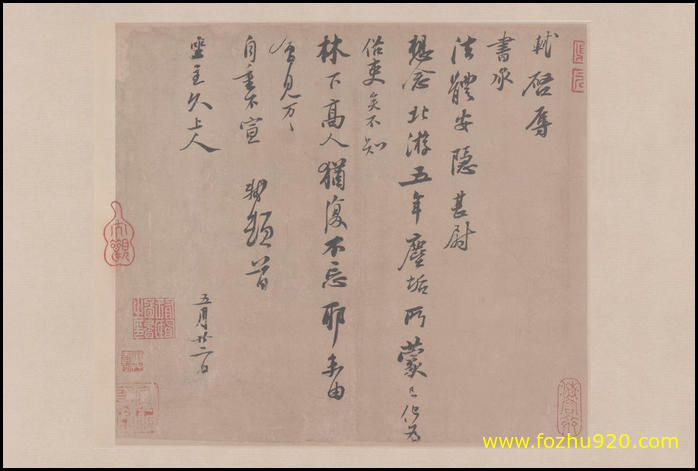 軾啓辱
書承
法體安隱甚尉
想念北游五年塵垢所蒙已化為
俗吏矣不知
林下高人猶復不忘耶未由
會見万々
自重不宣 軾頓首
坐主久上人
五月廿二日
www.fozhu920.com